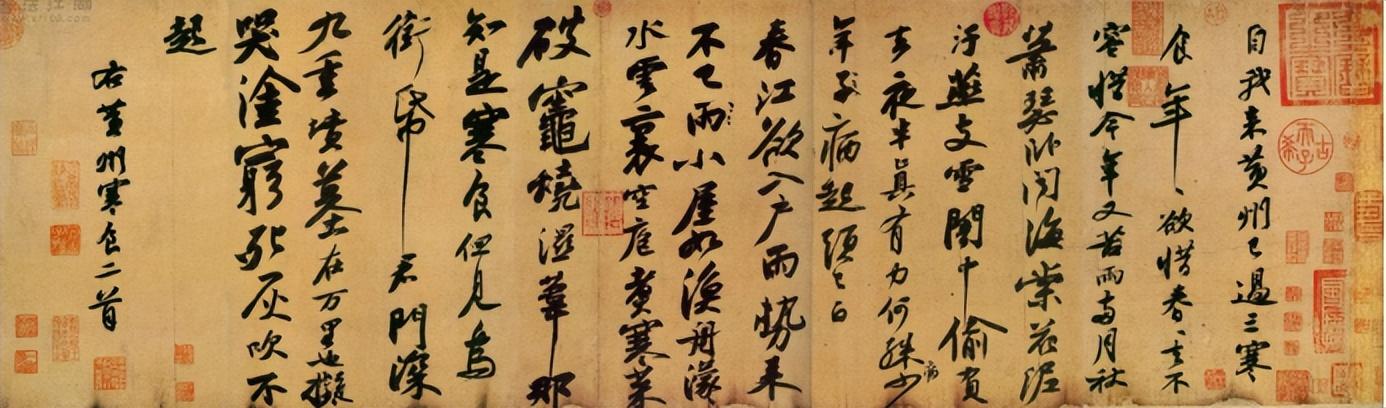 自我来黄州已過三寒
食年〻欲惜春〻去不
容惜今年又苦雨兩月秋
蕭瑟卧聞海棠花泥
汙燕支雪闇中偷負
去夜半真有力何殊少
病
年子病起頭已白
春江欲入户雨勢来
不已雨小屋如漁舟濛〻
水雲裏空庖煑寒菜
破竈燒濕葦那
知是寒食但見烏
銜帋君門深
九重墳墓在万里也擬
哭塗窮死灰吹不
起
右黄州寒食二首
古稀天子